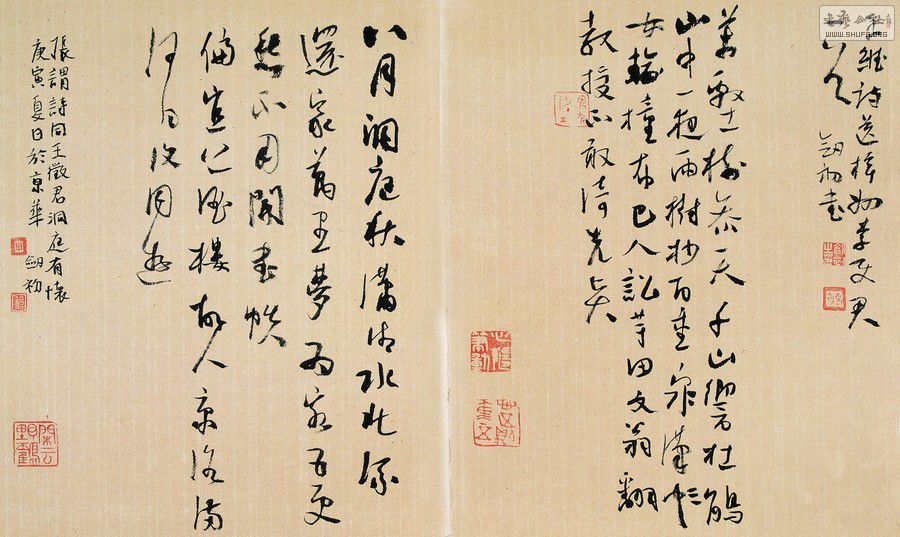 維詩送梓州李使君
劍初書
萬壑樹參天千山響杜鵑
山中一夜雨樹杪百重泉漢
女輸橦布巴人訟芋田文翁翻
教授不敢倚先賢
八月洞庭秋瀟湘水北流
還家萬里夢為客五更
愁不用開書帙
偏宜上酒樓故人京洛滿
何日復同遊
張謂詩同王徵君洞庭有懷
庚寅夏日於京華 劍初
閑云野鶴
WWW.SHUFA.ORG